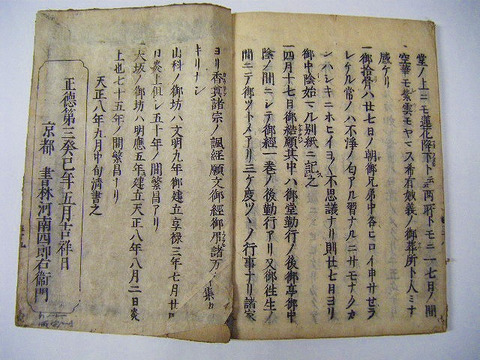 堂ノ上ニモ蓮花降下ト云両所トモニ一七日ノ間
空華モ紫雲モヤマス希有妙義ノ御葬所ト人ミナ
感ケリ
一御拾骨ハ廿七日ノ朝御兄弟中各ヒロイ申サセラ
レケル常ノハ不浄ノ匂アル習ナルニサモナクカ
ンハシキニホヒイヨ〱不思議ナリ則廿七日ヨリ
御中陰始マル別紙ニ記之
一四月十七日御結願其中ハ御堂勤行ノ後御亭御中
陰ノ間ニシテ御経一巻ノ後勤行アリ又御往生ノ
間ニテ御ツトメアリ三ケ度ツヽノ行事ナリ諸宗
ヨリ香奠諸宗ノ諷経願文御経御弔諸方ヨリ集カ
キリナシ
山科ノ御坊ハ文明九年御建立享禄三年七月廿四
日炎上但シ五十年ノ間繁昌アリ
大坂ノ御坊ハ明應五年建立天正八年八月二日炎
上也七十五年ノ間繁昌アリ
天正八年九月中旬清書之
正徳第三癸巳年五月吉祥日
京都 書林河南四郎右衛門